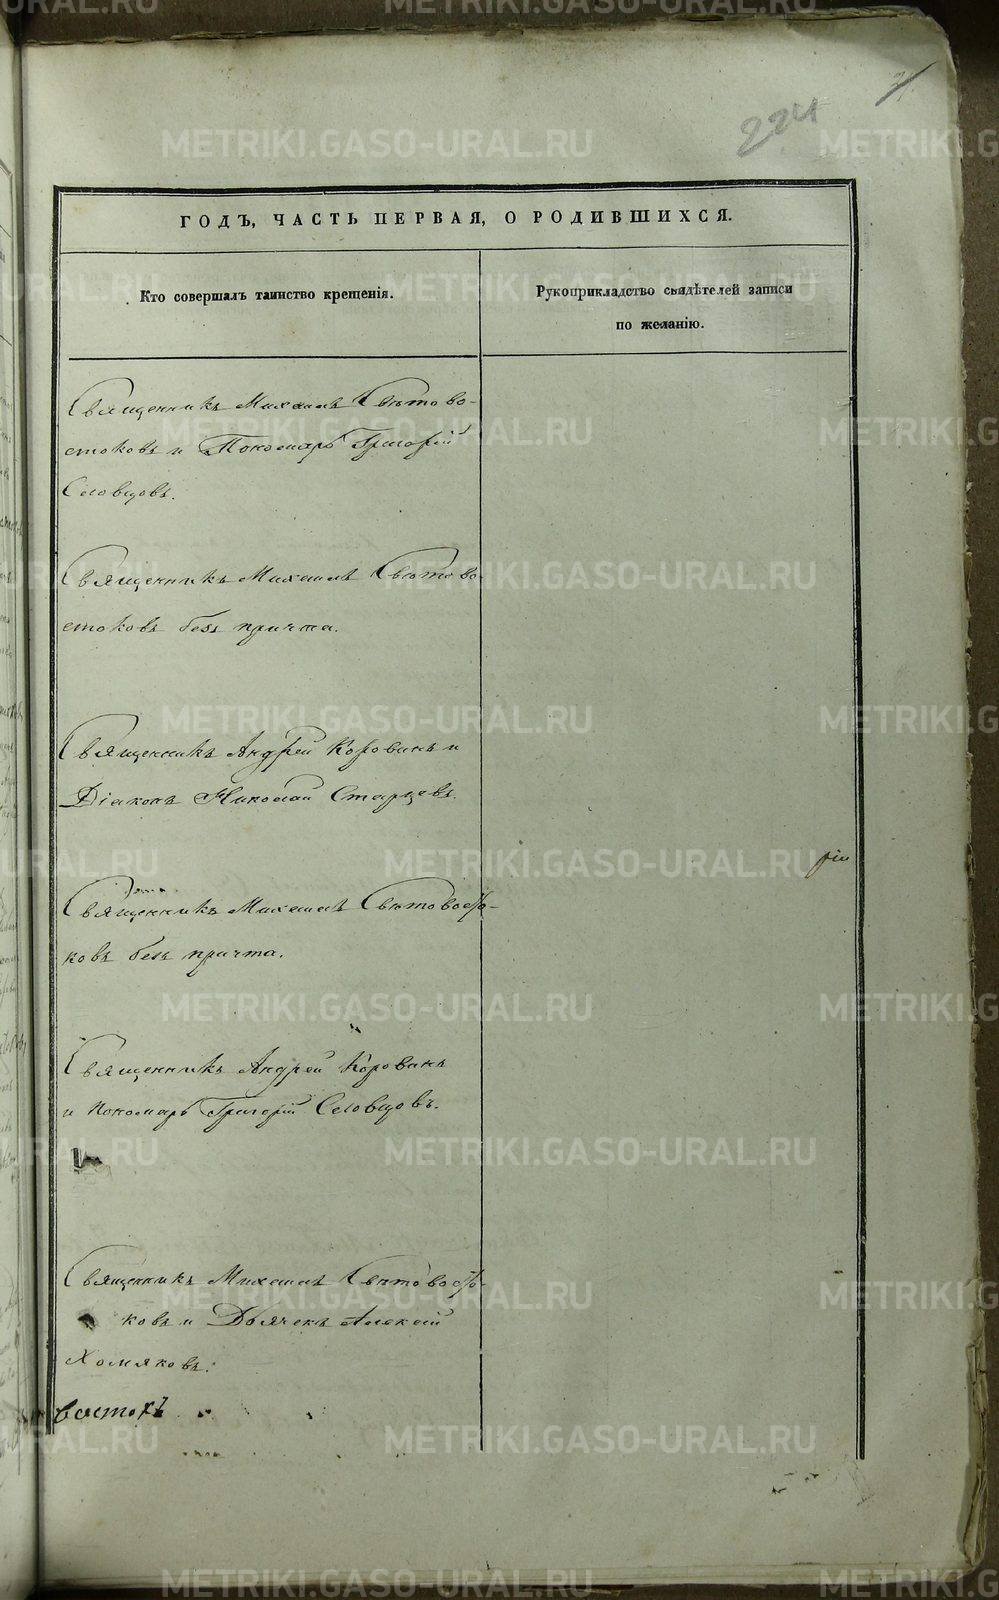 224
ГОДЪ, ЧАСТЬ ПЕРВАЯ, О РОДИВШИХСЯ.
Кто совершалъ таинство крещенія.
Рукоприкладство свидѣтелей записи
по желанію.
Священникъ Михаилъ Свѣтово-
стоковъ и Пономарь Григорій
Словцовъ.
Священникъ Михаилъ Свѣтово-
стоковъ безъ причта.
Священникъ Андрей Коровинъ и
Діаконъ Николай Старцевъ.
Священникъ Михаилъ Свѣтовосто-
ковъ безъ причта.
Священникъ Андрей Коровинъ
и Пономарь Григорій Словцовъ.
Священникъ Михаилъ Свѣтовосто-
ковъ и Дьячекъ Алексій
Хомяковъ.
METRIKI.GASO-URAL.RU